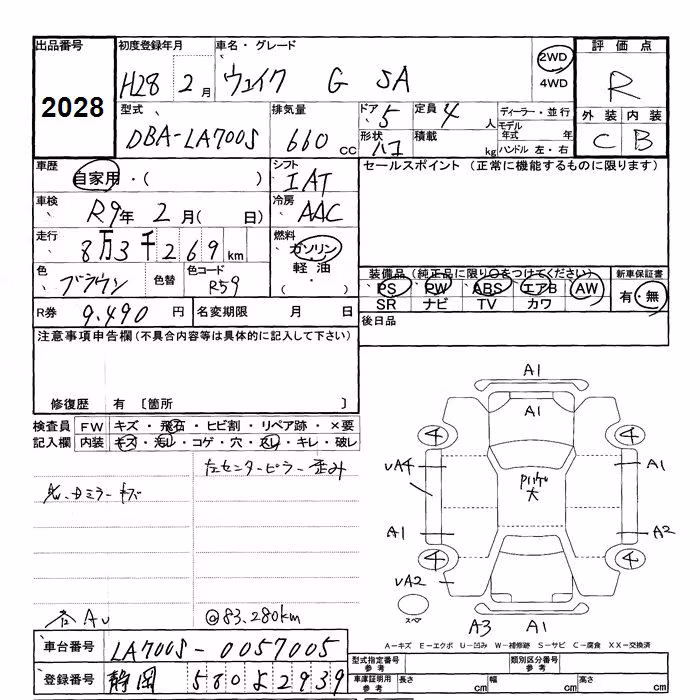 出品番号 初度登録年月 車名・グレード 2WD 評価点
2028 H28 2月 ウェイク G SA 4WD R
型式 排気量 ドア 定員 ディーラー・並行 外装 内装
DBA-LA700S 660 cc 5 4人 モデル年式 年 C B
形状 ハコ 積載 kg ハンドル 左・右
車歴 自家用・( ) シフト IAT セールスポイント (正常に機能するものに限ります)
車検 R9年 2月( 日) 冷房 AAC
走行 8万3千269km 燃料 ガソリン
軽油
・( )
色 ブラウン 色替 色コード R59
装備品 (純正品に限り○をつけてください) 新車保証書
PS PW ABS エアB AW 有・無
SR ナビ TV カワ
R券 9,490円 名変期限 月 日 後日品
注意事項申告欄(不具合内容等は具体的に記入して下さい)
修復歴 有 〔箇所 〕
検査員 FW キズ・飛石・ヒビ割・リペア跡・×要
記入欄 内装 キズ・汚レ・コゲ・穴・スレ・キレ・破レ
左センターピラー歪み
ミラーキズ
@83,280km
A1
A1
4 4
UA4 A1
ﾙｰﾌ
大
A1 A2
4 4
UA2
スペア A3 A1
A−キズ E−エクボ U−凹み W−補修跡 S−サビ C−腐食 XX−交換済
車台番号 LA700S-0057005
型式指定番号 参考 類別区分番号 参考
登録番号 静岡 580 よ 2939
車庫証明用 参考 長さ cm 幅 cm 高さ cm